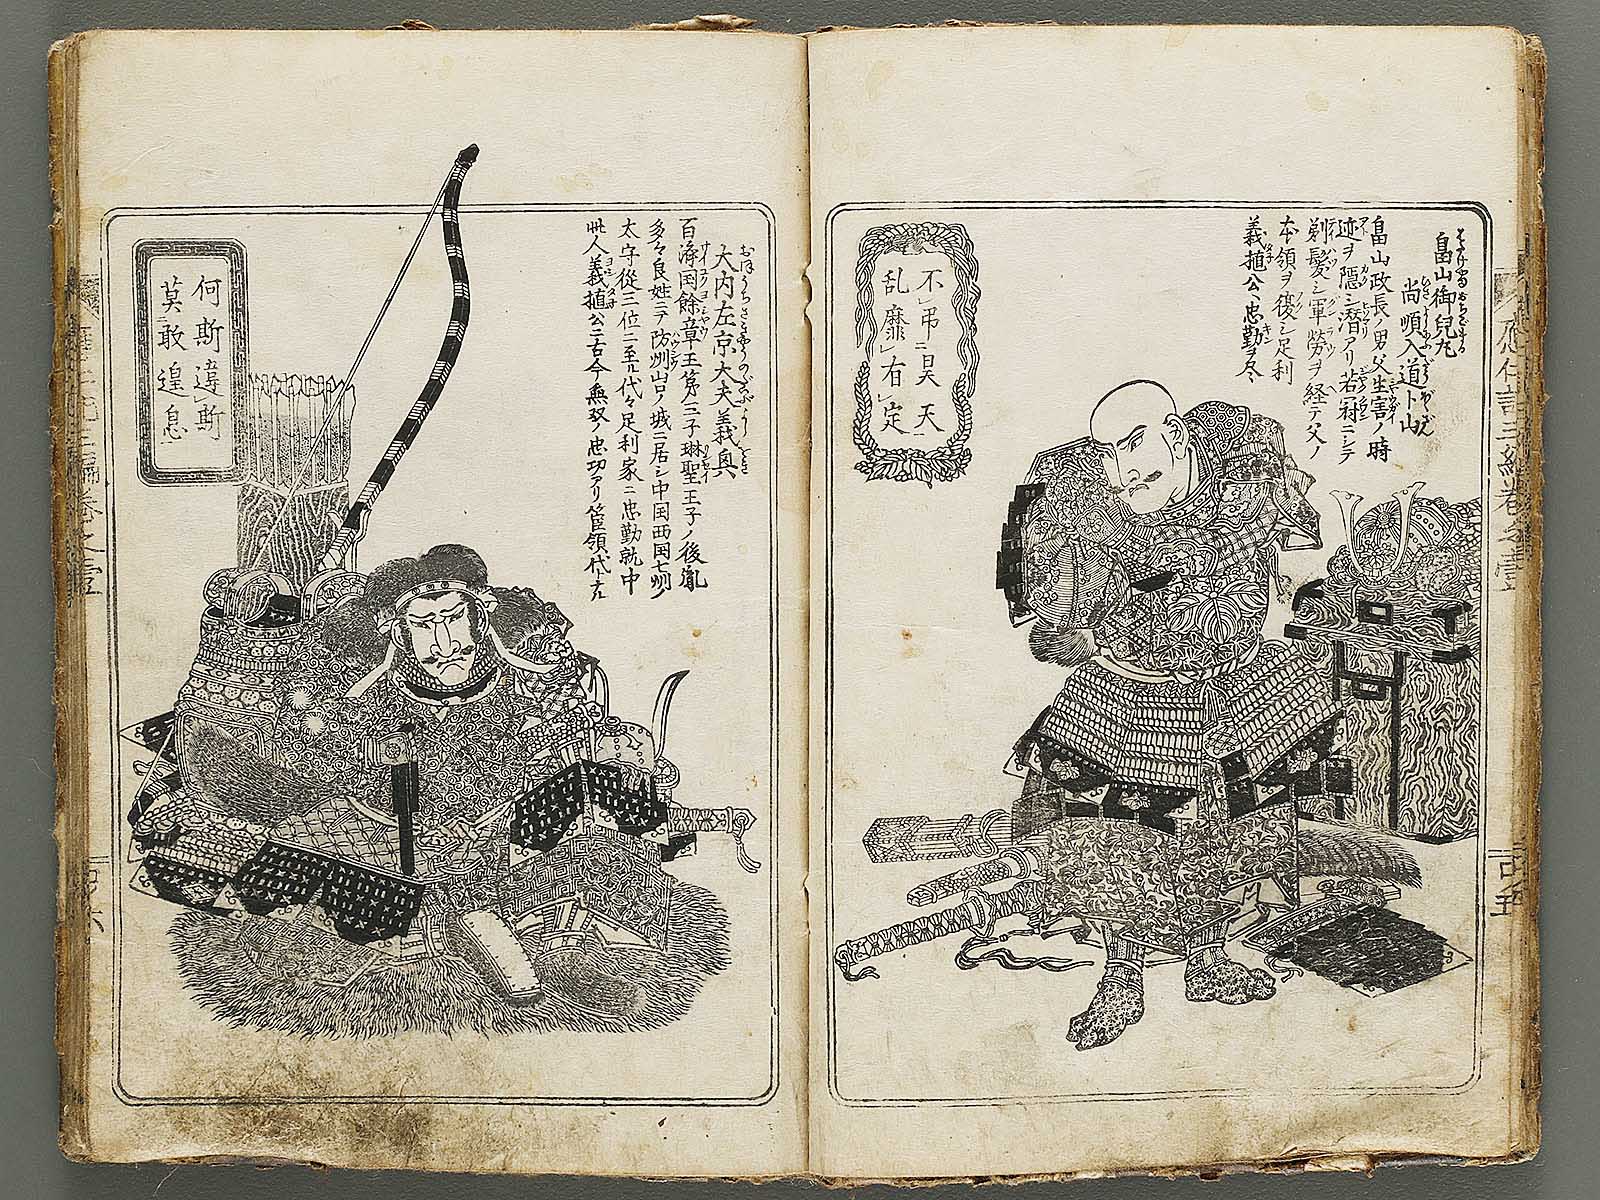 畠山御児丸
尚順入道卜山
畠山政長ノ男父生害ノ時
迹ヲ隠シ潜アリ若冠ニシテ
剃髪シ軍労ヲ経テ父ノ
本領ヲ復シ足利
義植公ヘ忠勤ヲ尽ス
不弔昊天
乱靡有定
大内左京大夫義奥
百済国餘章王第三子琳聖王子ノ後胤
多々良姓ニテ防州山口ノ城ニ居シ中国西国七州ノ
太守従三位ニ至ル代々足利家ニ忠勤就中
此人義植公ニ古今無双ノ忠功アリ管領代トナル
何斯違斯
莫敢遑息